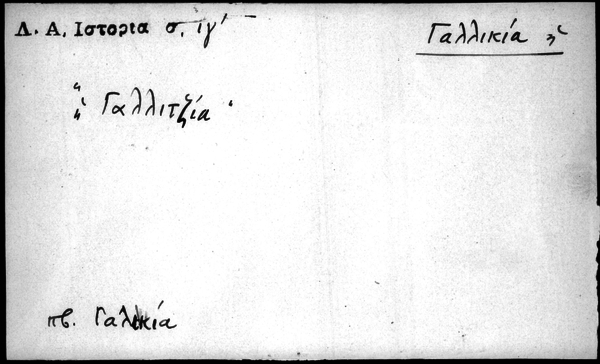 Δ. Α. Ιστορια σ. ιγ'
Γαλλικία, ἡ
"ἡ Γαλλιτζία"
πβ. Γαλικία